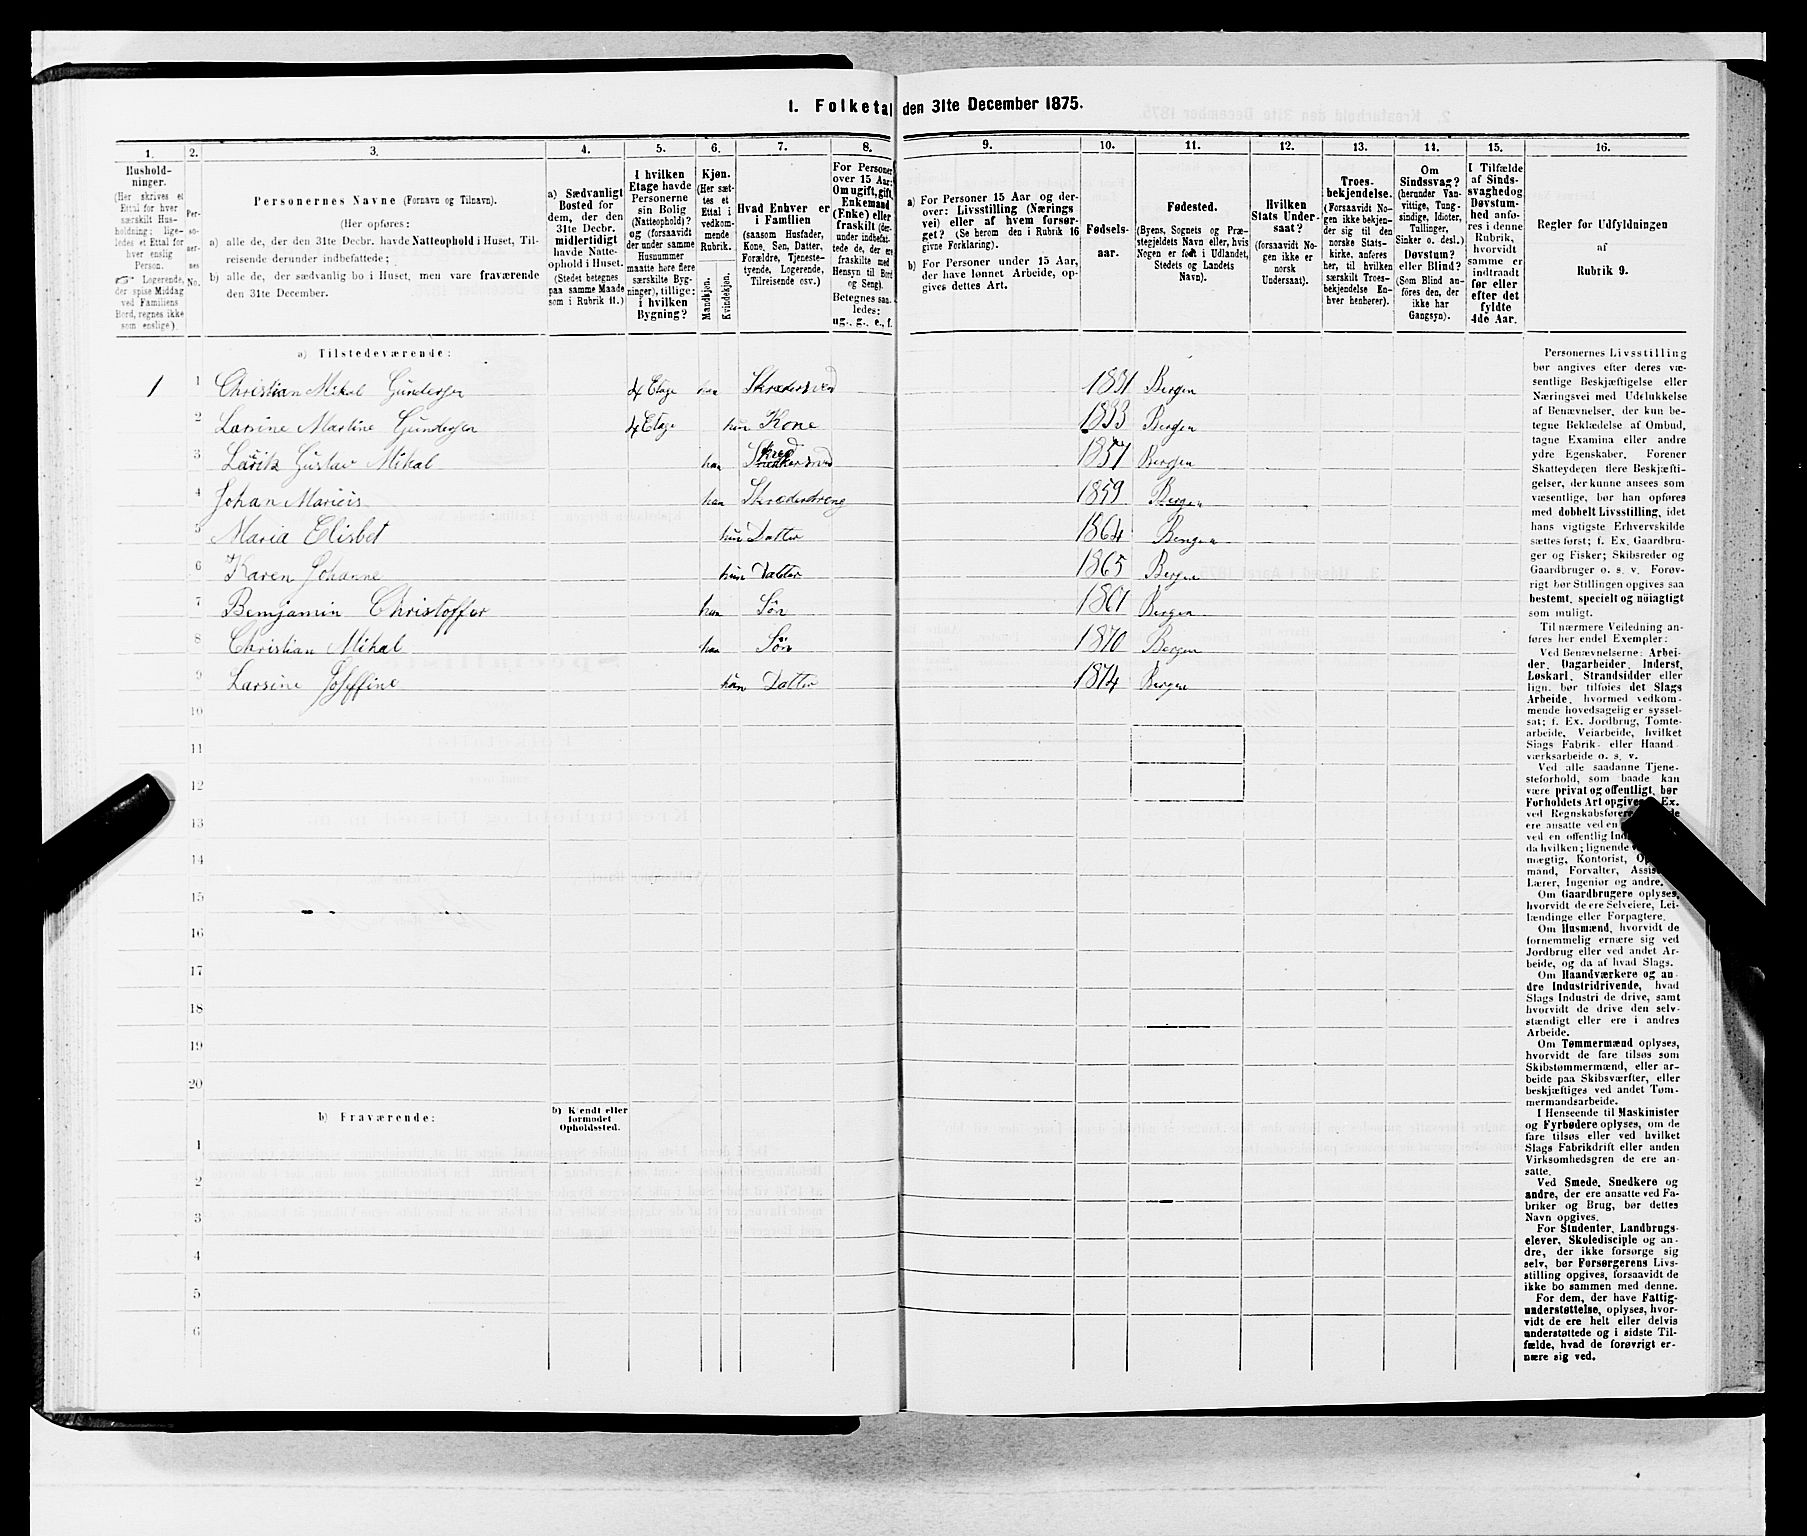 1. Folketal den 31te December 1875.
1.
Hushold-
ninger.
(Her skrives et
Ettal for hver
særskilt Hus-
holdning; lige-
ledes et Ettal for
hver enslig
Person.
Logerende,
der spise Middag
ved Familiens
Bord, regnes ikke
som enslige).
2.
Per-
so-
ner-
nes
No.
3.
Personernes Navne (Fornavn og Tilnavn).
(Her opføres:
a) alle de, der den 31te Decbr. havde Natteophold i Huset, Til-
reisende derunder indbefattede;
b) alle de, der sædvanlig bo i Huset, men vare fraværende
den 31te December.
4.
a) Sædvanligt
Bosted for
dem, der den
31te Decbr.
midlertidigt
havde Natte-
ophold i Huset.
(Stedet betegnes
paa samme Maade
som i Rubrik 11.)
5.
I hvilken
Etage havde
Personerne
sin Bolig
(Natteophold)?
og (forsaavidt
der under samme
Husnummer
maatte høre flere
særskilte Byg-
ninger), tillige:
i hvilken
Bygning?
6.
Kjøn.
(Her sæt-
tes et
Ettal i
vedkom-
mende
Rubrik.
Mandkjøn.
Kvindekjøn.
7.
Hvad Enhver er
i Familien
(saasom Husfader,
Kone, Søn, Datter,
Forældre, Tjeneste-
tyende, Logerende,
Tilreisende osv.)
8.
For Personer
over 15 Aar:
Om ugift, gift,
Enkemand
(Enke) eller
fraskilt (der-
under indbefat-
tede de, der ere
fraskilte med
Hensyn til Bord
og Seng).
Betegnes saa-
ledes:
ug., g., e., f.
9.
a) For Personer 15 Aar og der-
over: Livsstilling (Nærings
vei) eller af hvem forsør-
get? (Se herom den i Rubrik 16
givne Forklaring).
b) For Personer under 15 Aar,
der have lønnet Arbeide, op-
gives dettes Art.
10.
Fødsels-
aar.
11.
Fødested.
(Byens, Sognets og Præ-
stegjeldets Navn eller, hvis
Nogen er født i Udlandet,
Stedets og Landets
Navn).
12.
Hvilken
Stats Under-
saat?
(forsaavidt No-
gen ikke er
norsk
Undersaat).
13.
Troes-
bekjendelse.
(Forsaavidt No-
gen ikke bekjen-
der sig til den
norske Stats-
kirke, anføres
her, til hvilken
særskilt Troes-
bekjendelse En-
hver henhører).
14.
Om
Sindssvag?
(herunder Van-
vittige, Tung-
sindige, Idioter,
Tullinger,
Sinker o. desl.)
Døvstum?
eller Blind?
(Som Blind an-
føres den, der
ikke har
Gangsyn).
15.
I Tilfælde
af Sinds-
svaghed og
Døvstum-
hed anfø-
res i denne
Rubrik,
hvorvidt
samme er
indtraadt
før eller
efter det
fyldte
4de Aar.
16.
Regler for Udfyldningen
af
Rubrik 9.
a) Tilstedeværende:
1 1 Christian Mikal Gundersen 4 Etage han Skrædersvend 1831 Bergen
2 Larsine Martine Gundersen 4 Etage hun Kone 1833 Bergen
3 Gustav Mikal han 1857 Bergen
4 Johan Marius han Skræderdreng 1859 Bergen
5 Maria Elisbet hun Datter 1864 Bergen
6 Karen Johanne hun Datter 1865 Bergen
7 Bemjamin Christoffer han Sön 1861 Bergen
8 Christian Mikal han Sön 1870 Bergen
9 Larsine Joseffine hun Datter 1874 Bergen
10
11
12
13
14
15
16
17
18
19
20
b) Fraværende:
b) Kjendt eller
formodet
Opholdssted.
1
2
3
4
5
6
Personernes Livsstilling
bør angives efter deres væ-
sentlige Beskjæftigelse eller
Næringsvei med Udelukkelse
af Benævnelser, der kun be-
tegne Beklædelse af Ombud,
tagne Examina eller andre
ydre Egenskaber. Forener
Skatteyderen flere Beskjæfti-
gelser, der kunne ansees som
væsentlige, bør han opføres
med dobbelt Livsstilling, idet
hans vigtigste Erhvervskilde
sættes først; f. Ex. Gaardbru-
ger og Fisker; Skibsreder og
Gaardbruger o. s. v. Forøv-
rigt bør Stillingen opgives saa
bestemt, specielt og nöiagtigt
som muligt.
Til nærmere Veiledning an-
føres her endel Exempler:
Ved Benævnelserne: Arbei-
der, Dagarbeider, Inderst,
Løskarl, Strandsidder eller
lign. bør tilføies det Slags
Arbeide, hvormed vedkom-
mende hovedsagelig er syssel-
sat; f. Ex. Jordbrug, Tomte-
arbeide, Veiarbeide, hvilket
Slags Fabrik- eller Haand
værksarbeide o. s. v.
Ved alle saadanne Tjene-
steforhold, som baade kan
være privat og offentligt, bør
Forholdets Art opgives Ex.
ved Regnskabsførere
ere ansatte ved en
ved en offentlig
da hvilken; lignende
mægtig, Kontorist,
mand, Forvalter,
Lærer, Ingeniør og andre.
Om Gaardbrugere oplyses,
hvorvidt de ere Selveiere, Lei-
lændinge eller Forpagtere.
Om Husmænd, hvorvidt de
fornemmelig ernære sig ved
Jordbrug eller ved andet Ar-
beide, og da af hvad Slags.
Om Haandværkere og an
dre Industridrivende, hvad
Slags Industri de drive, samt
hvorvidt de drive den selv-
stændigt eller ere i andres
Arbeide.
Om Tømmermænd oplyses,
hvorvidt de fare tilsøs som
Skibstømmermænd, eller ar-
beide paa Skibsværfter, eller
beskjæftiges ved andet Tøm-
mermandsarbeide.
I Henseende til Maskinister
og Fyrbødere oplyses, om de
fare tilsøs eller ved hvilket
Slags Fabrikdrift eller anden
Virksomhedsgren de ere an-
satte.
Ved Smede, Snedkere og
andre, der ere ansatte ved Fa-
briker og Brug, bør dettes
Navn opgives.
For Studenter, Landbrugs-
elever, Skoledisciple og an-
dre, der ikke forsørge sig
selv, bør Forsørgerens Livs-
stilling opgives, forsaavidt de
ikke bo sammen med denne.
For dem, der have Fattig-
understøttelse, oplyses, hvor-
vidt de ere helt eller delvis
understøttede og i sidste Til-
fælde, hvad de forøvrigt er-
nære sig ved.